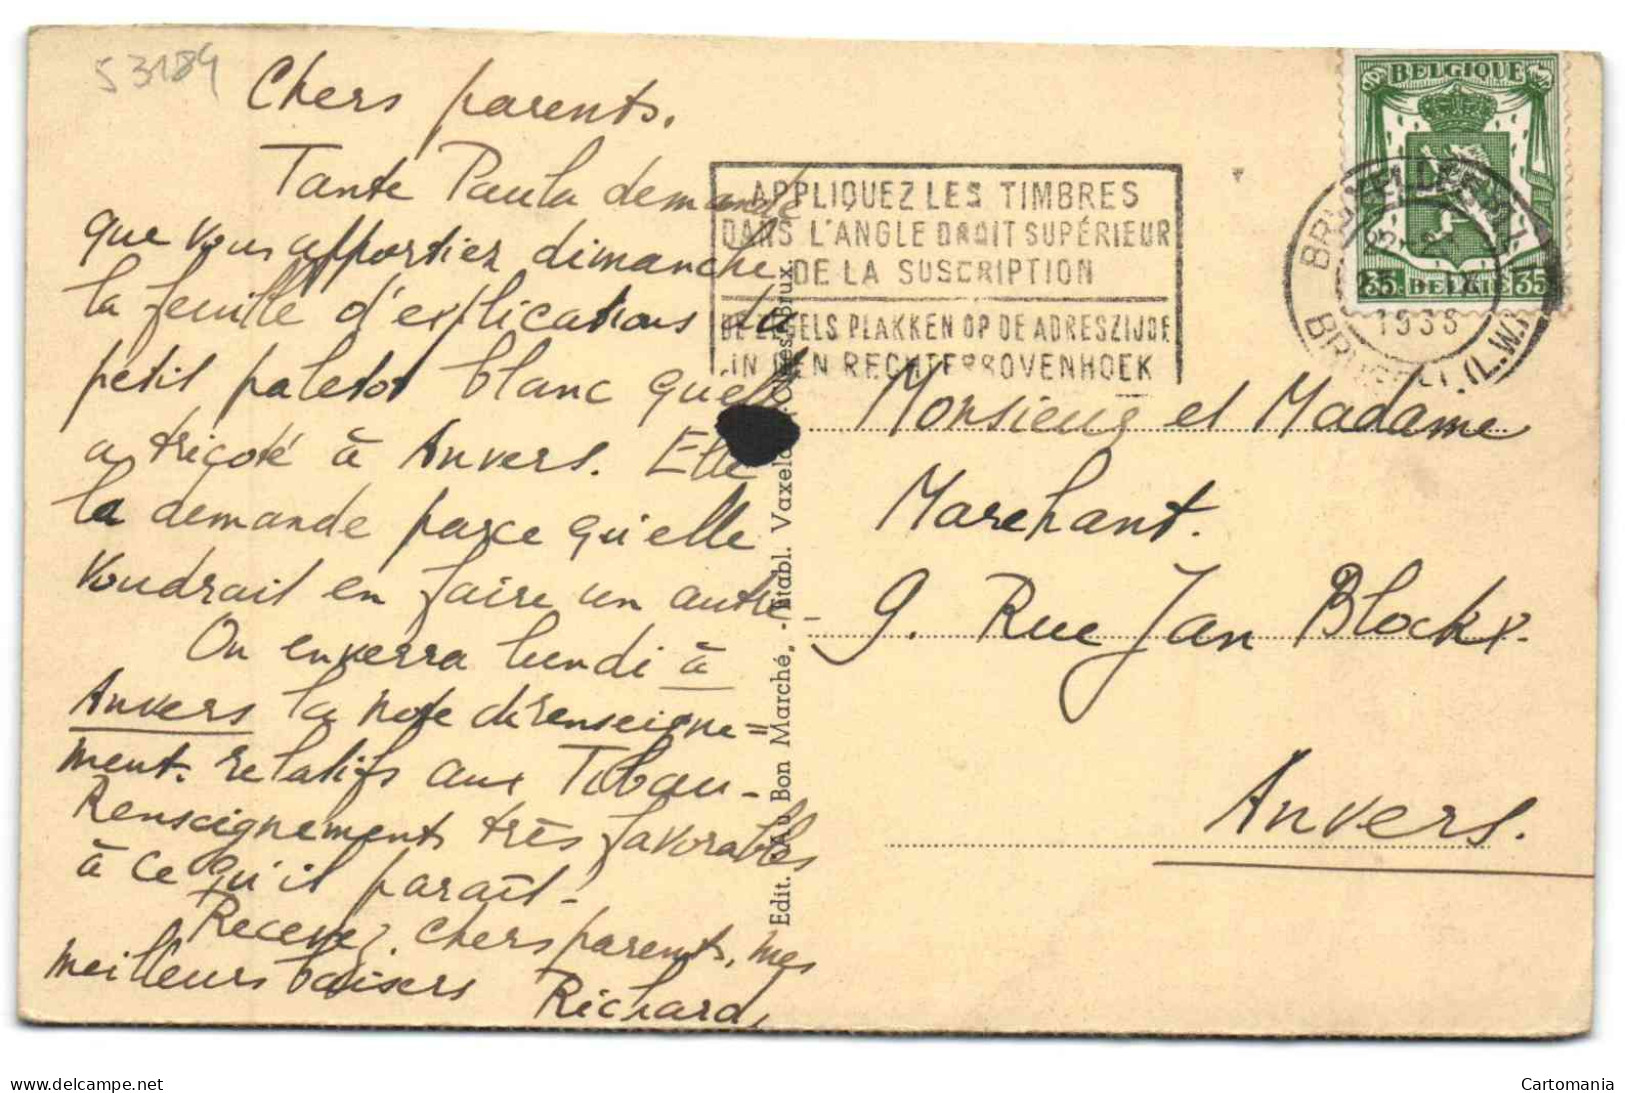 53184
Chers parents.
Tante Paula demande
que vous apportiez dimanche
la feuille d'explications du
petit paletot blanc quelle
a tricoté à Anvers. Elle
la demande parce qu'elle
voudrait en faire un autre -
On enverra lundi à
Anvers la note de renseigne=
ment. relatifs aux
Renseignements très favorables
à ce qu'il paraît -
Recevez, chers parents, mes
meilleurs baisers
Richard,
Edit. „Au Bon Marché„ - Etabl. Vaxelaire-Claes, Brux.
APPLIQUEZ LES TIMBRES
DANS L'ANGLE DROIT SUPÉRIEUR
DE LA SUSCRIPTION
DE ZEGELS PLAKKEN OP DE ADRESZIJDE
IN DEN RECHTERBOVENHOEK
BELGIQUE
35 BELGIE 35
BRUXELLES
BRUSSEL (L.W.)
Monsieur et Madame
Marchant.
9. Rue Jan Blockx.
Anvers.
delcampe.net
Cartomania